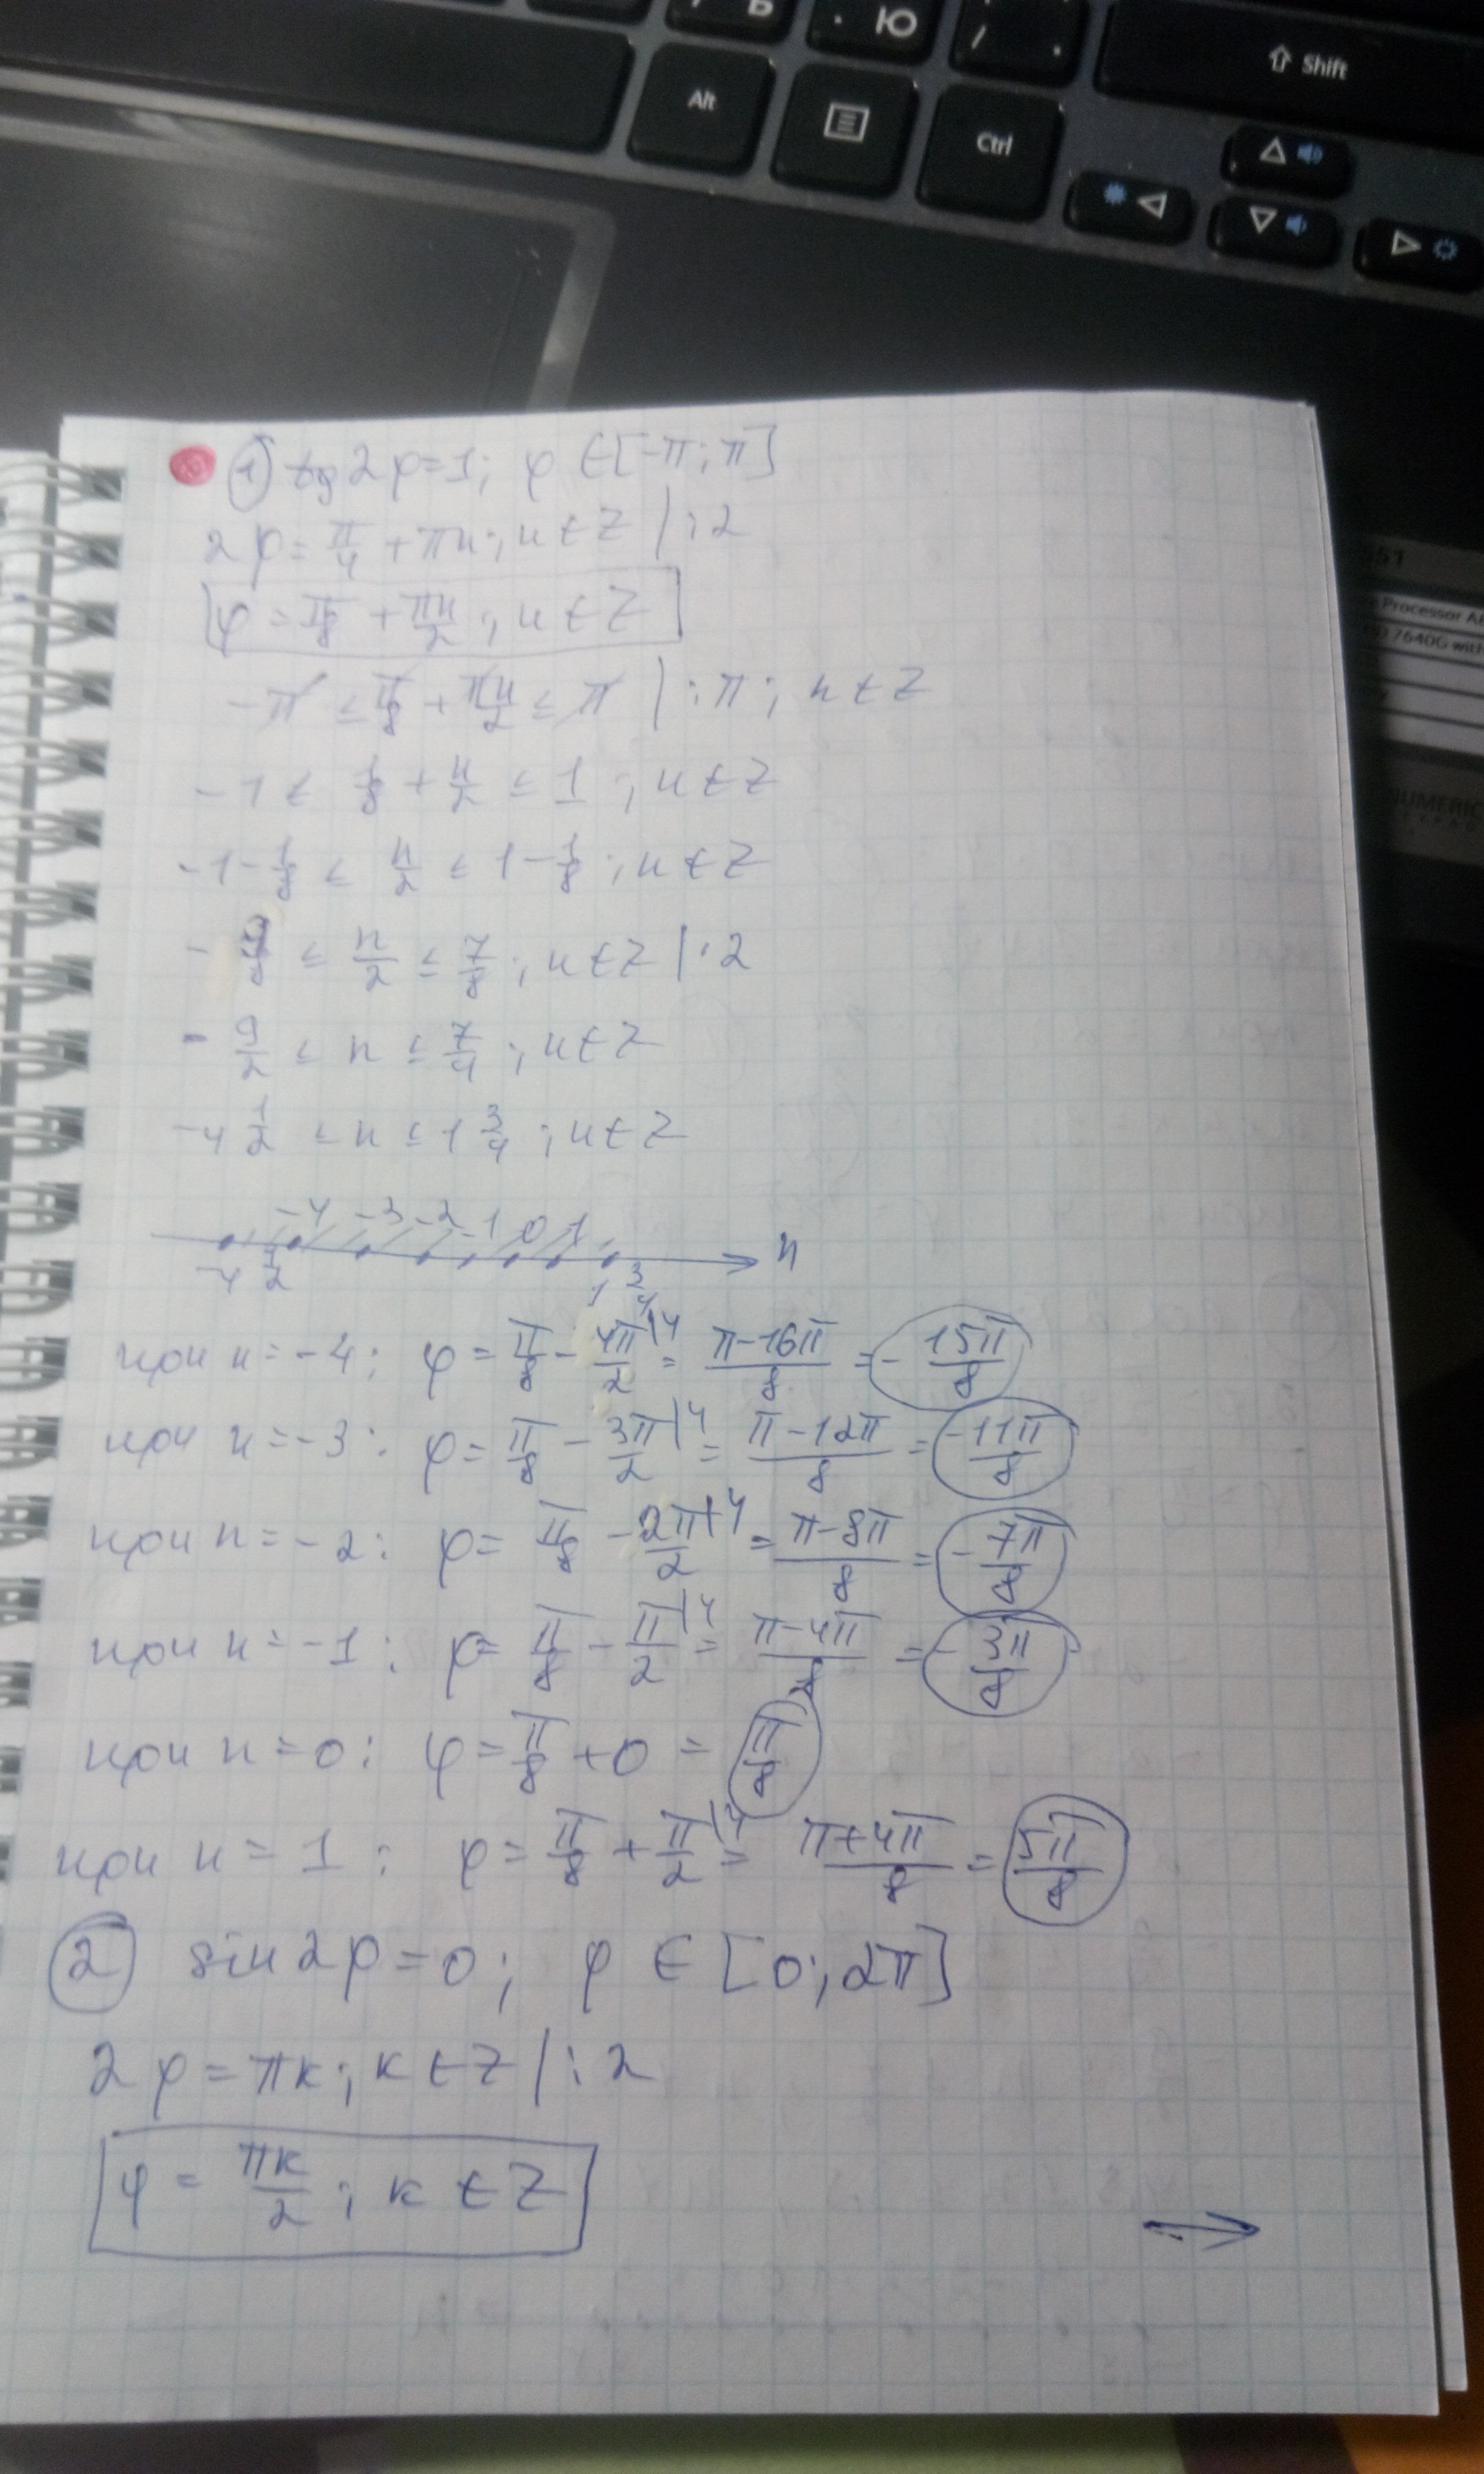 Ь
Ю
/ .
⇧ Shift
Alt
Ctrl
551
Processor A
7640G with
NUMERIC
① tg2φ=1; φ∈[-π;π]
2φ=π/4+πn; n∈Z |:2
φ=π/8+πn/2; n∈Z
-π≤π/8+πn/2≤π |:π; n∈Z
-1≤1/8+n/2≤1; n∈Z
-1-1/8≤n/2≤1-1/8; n∈Z
-9/8≤n/2≤7/8; n∈Z |·2
-9/2≤n≤7/4; n∈Z
-4 1/2≤n≤1 3/4; n∈Z
-4 -3 -2 -1 0 1 n
-4 1/2 1 3/4
при n=-4: φ=π/8-4π/2|4=(π-16π)/8=-15π/8
при n=-3: φ=π/8-3π/2|4=(π-12π)/8=-11π/8
при n=-2: φ=π/8-2π/2|4=(π-8π)/8=-7π/8
при n=-1: φ=π/8-π/2|4=(π-4π)/8=-3π/8
при n=0: φ=π/8+0=π/8
при n=1: φ=π/8+π/2|4=(π+4π)/8=5π/8
② sin2φ=0; φ∈[0;2π]
2φ=πк; к∈Z |:2
φ=πк/2; к∈Z
→